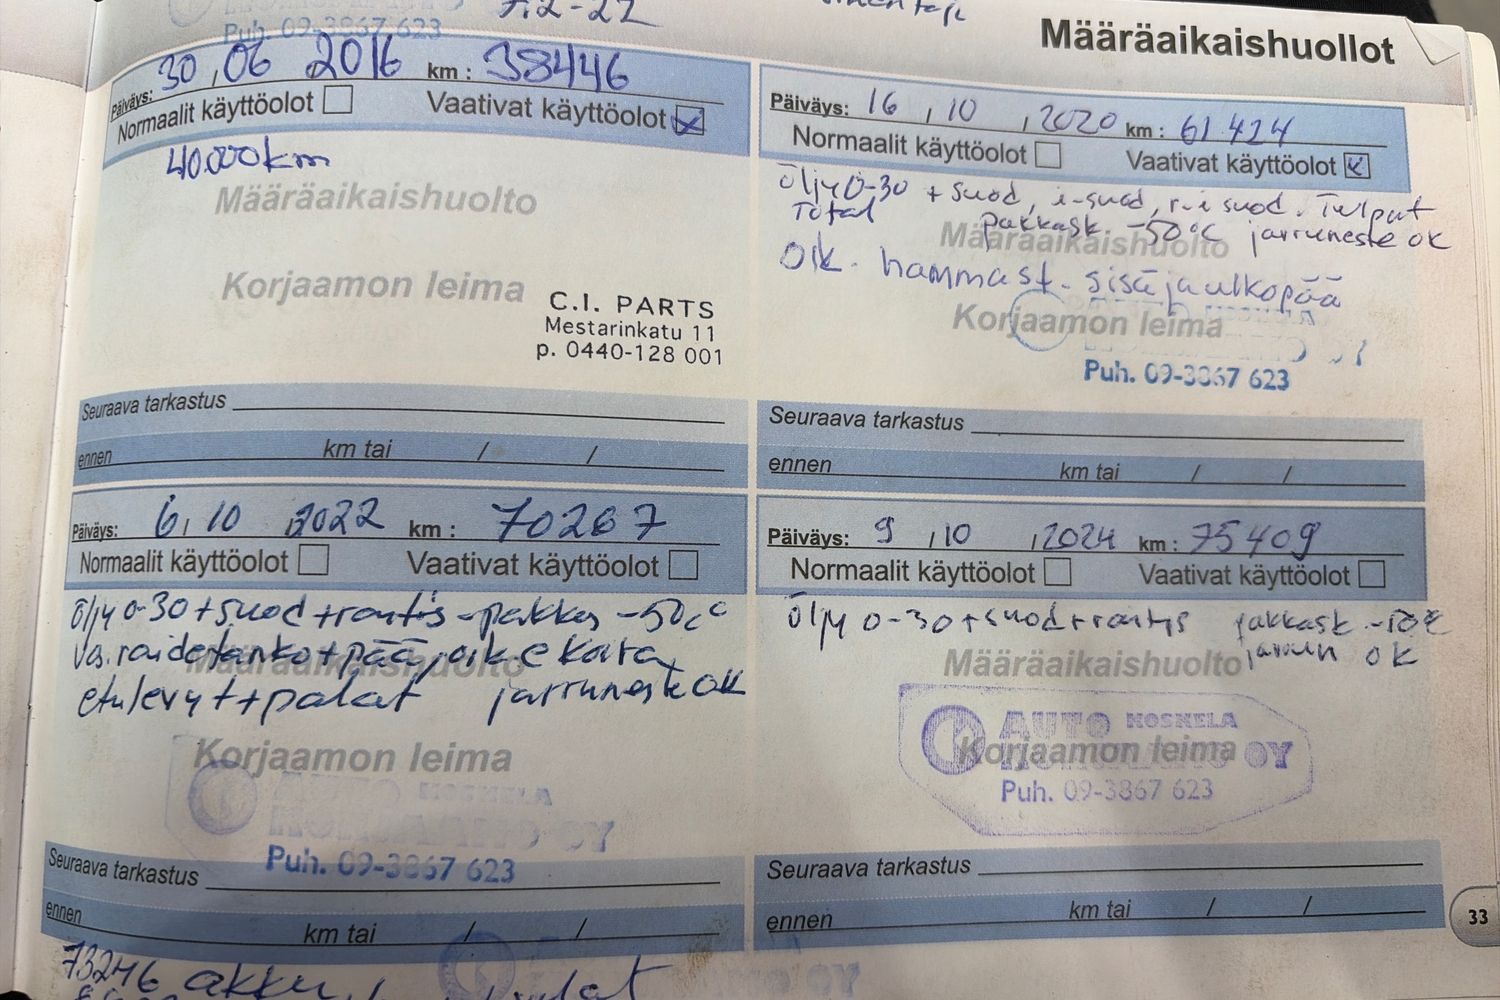 7.2-22
Puh. 09-3867 623
Määräaikaishuollot
Päiväys: 30,06 2016 km: 38446
Normaalit käyttöolot Vaativat käyttöolot
40.000km
Määräaikaishuolto
Korjaamon leima
C.I. PARTS
Mestarinkatu 11
p. 0440-128 001
Seuraava tarkastus
ennen km tai / /
Päiväys: 16,10,2020 km: 61.424
Normaalit käyttöolot Vaativat käyttöolot
Öljy 0-30 + suod, i-suod, r-i suod. Tulpat
Total pakkask -50°C jarruneste ok
Määräaikaishuolto
Oik. hammast. sisä ja ulkopää
Korjaamon leima
Puh. 09-3867 623
Seuraava tarkastus
ennen km tai / /
Päiväys: 6,10,2022 km: 70267
Normaalit käyttöolot Vaativat käyttöolot
Öljy 0-30 + suod + rasitis - -50°C
Määräaikaishuolto
Vas. raidetanko + pää, oik
etulevyt + palat jarruneste ok
Korjaamon leima
Puh. 09-3867 623
Seuraava tarkastus
ennen km tai / /
73246 akku
Päiväys: 9,10,2024 km: 75409
Normaalit käyttöolot Vaativat käyttöolot
Öljy 0-30 + suod + pakkask
ok
Määräaikaishuolto
AUTO KOSKELA
Korjaamon leima
OY
Puh. 09-3867 623
Seuraava tarkastus
ennen km tai / /
33